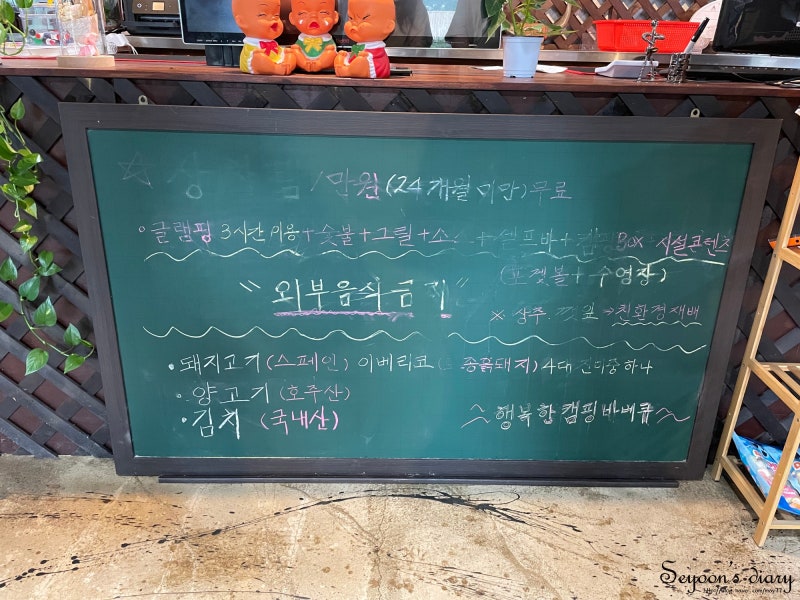 1만원 (24개월 미만) 무료
• 글램핑 3시간 이용 + 숯불 + 그릴 + 소 + 셀프바 + Box 시설콘텐츠
(포켓볼 + 수영장)
"외부음식금지"
※ 상추. 깻잎 → 친환경재배
• 돼지고기 (스페인) 이베리코 (흑 종돼지) 4대 진미중 하나
• 양고기 (호주산)
• 김치 (국내산)
~ 행복한 캠핑 바베큐 ~
Seyoon's diary